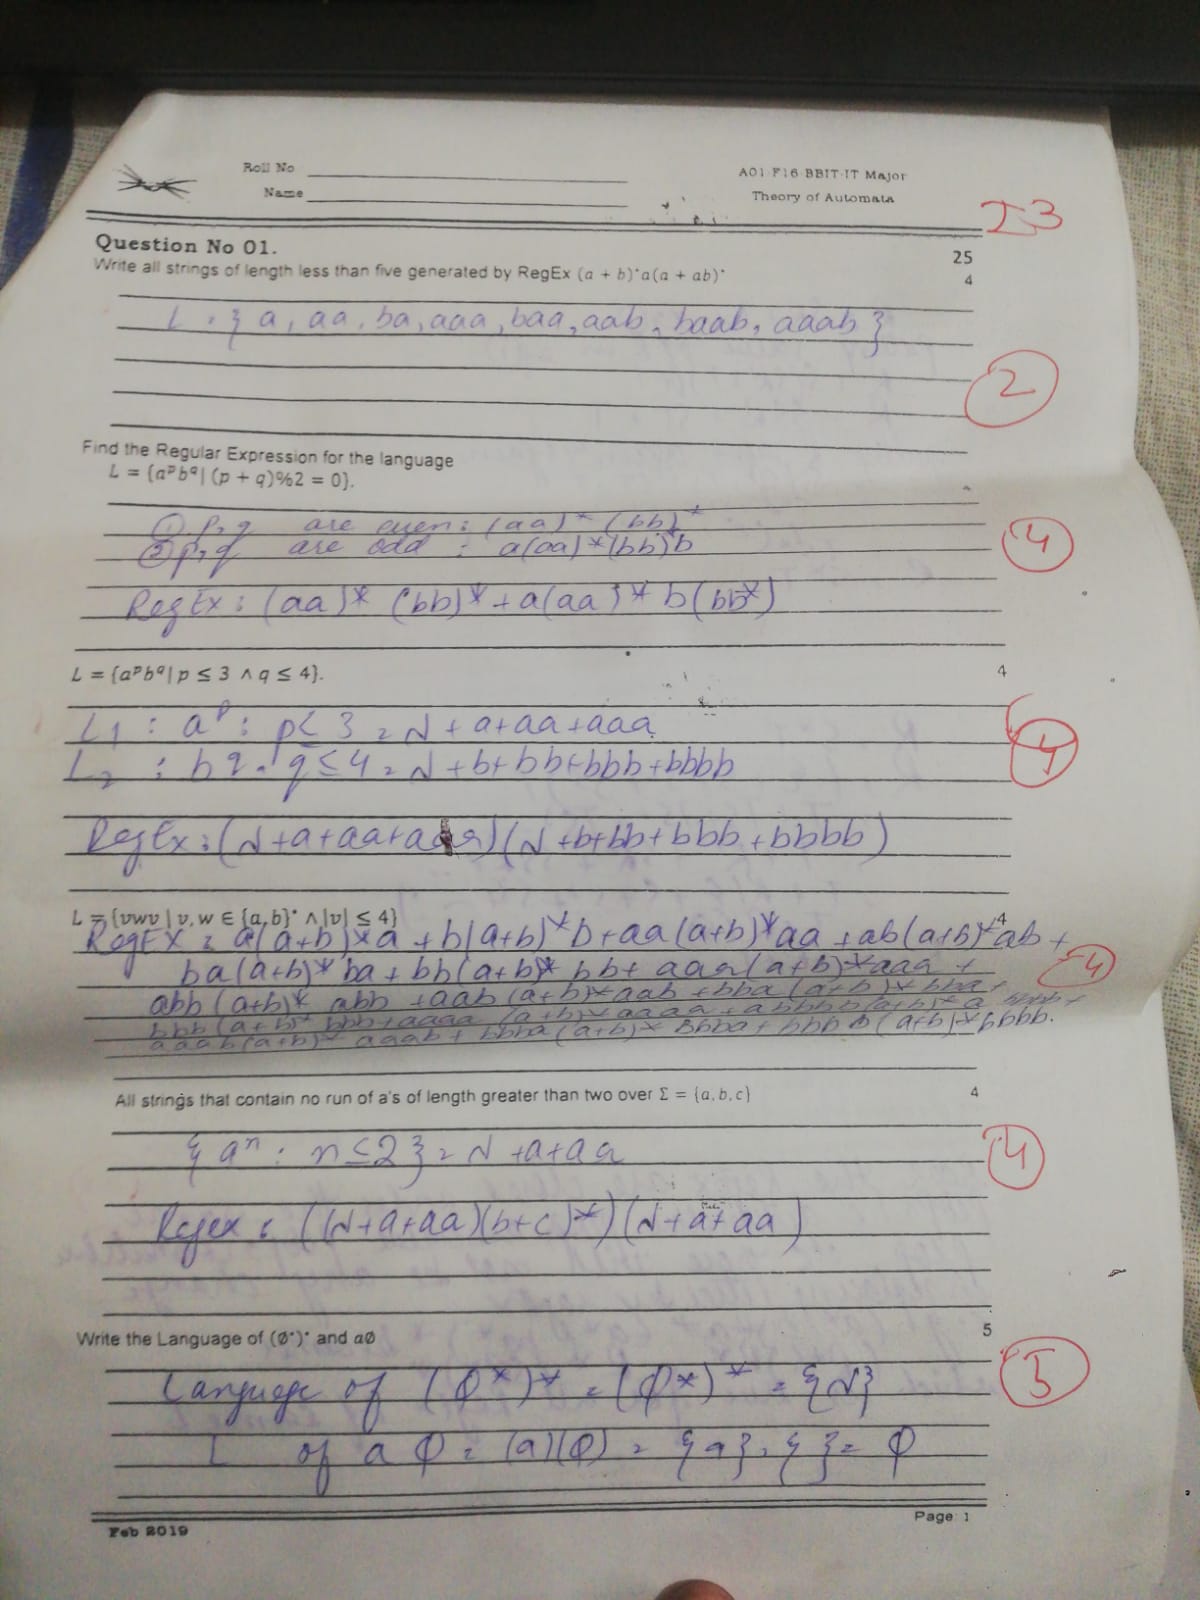 Roll No
A01-F16-BBIT-IT Major
Name
Theory of Automata
23
Question No 01.
25
Write all strings of length less than five generated by RegEx (a + b)*a(a + ab)*
4
L = { a, aa, ba, aaa, baa, aab, baab, aaab }
2
Find the Regular Expression for the language
L = {aᵖbᑫ| (p + q)%2 = 0}.
① p,q are even: (aa)* (bb)*
② p,q are odd : a(aa)*(bb)*b
4
RegEx: (aa)* (bb)* + a(aa)* b(bb*)
L = {aᵖbᑫ| p ≤ 3 ∧ q ≤ 4}.
4
L₁ : aᵖ : p ≤ 3 = Λ + a + aa + aaa
L₂ : bq. q ≤ 4 = Λ + b + bb + bbb + bbbb
4
RegEx: (Λ + a + aa + aaa)(Λ + b + bb + bbb + bbbb)
L = {vwv | v, w ∈ {a, b}* ∧ |v| ≤ 4}
4
RegEx = a(a+b)*a + b(a+b)*b + aa(a+b)*aa + ab(a+b)*ab +
ba(a+b)* ba + bb(a+b)* bb + aaa(a+b)*aaa +
4
abb(a+b)* abb + aab(a+b)*aab + bba(a+b)* bba +
bbb(a+b)* bbb + aaaa (a+b)*aaaa +
aaab(a+b)* aaab + bbba(a+b)* bbba + bbbb(a+b)*bbbb.
All strings that contain no run of a's of length greater than two over Σ = {a, b, c}
4
{ aⁿ : n ≤ 2 } = Λ + a + aa
4
Regex : ((Λ + a + aa)(b+c)*)(Λ + a + aa)
Write the Language of (Ø*)* and aØ
5
Language of (Φ*)* = (Φ*)* = {Λ}
5
L of a Φ = (a)(Φ) = {a}.{ } = Φ
Feb 2019
Page: 1